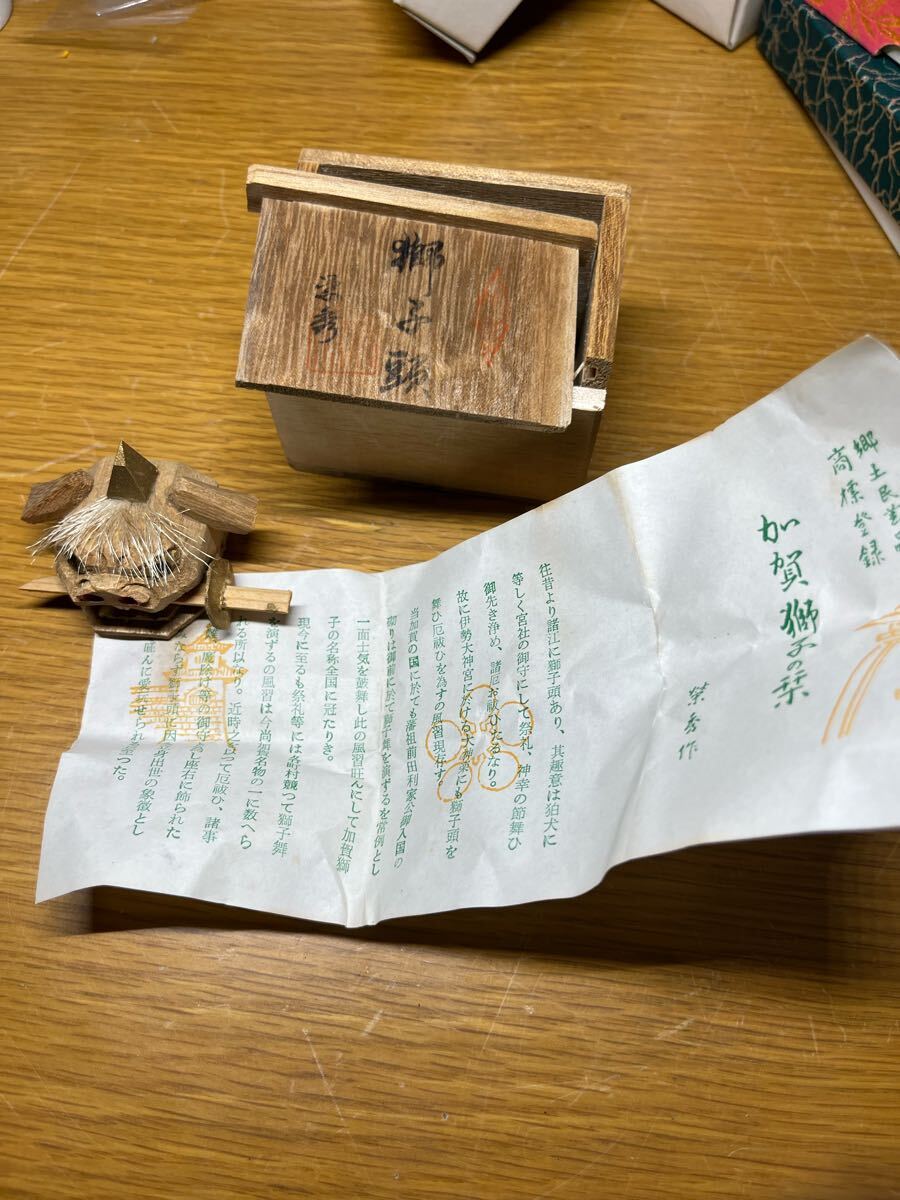 獅子頭
郷土民
商標登録
加賀獅子の栞
栄秀作
往昔より諸江に獅子頭あり、其趣意は狛犬に
等しく宮社の御守にして祭礼、神幸の節舞ひ
御先き浄め、諸厄お祓ひたるなり。
故に伊勢大神宮に於ける大神楽にも獅子頭を
舞ひ厄祓ひを為すの風習現存す。
当加賀の国に於ても藩祖前田利家公御入国の
砌りは御前に於て獅子舞を演ずるを常例とし
一面士気を鼓舞し此の風習旺んにして加賀獅
子の名称全国に冠たりき。
現今に至るも祭礼等には各村競つて獅子舞
を演ずるの風習は今尚賀名物の一に数へら
れる所以なり。近時之を以つて厄祓ひ、諸事
魔除け等の御守
座右に飾られた
身出世の象徴とし
旺んに愛玩せられ
至つた。